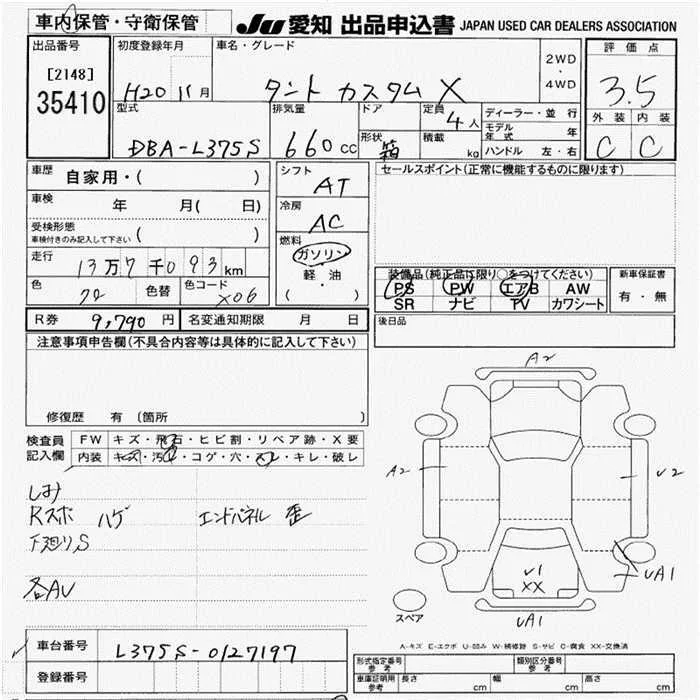 車内保管・守衛保管
JU 愛知 出品申込書 JAPAN USED CAR DEALERS ASSOCIATION
出品番号
[2148]
35410
初度登録年月
H20 11月
車名・グレード
タント カスタム X
2WD
・
4WD
評価点
3.5
外装 内装
C C
型式
DBA-L375S
排気量
660cc
ドア
形状
箱
定員
4人
積載
kg
ディーラー・並行
モデル年式 年
ハンドル 左・右
車歴
自家用・( )
車検
年 月( 日)
受検形態
車検付きのみ記入して下さい ( )
走行
13万7千093km
色
色替
色コード
X06
シフト
AT
冷房
AC
燃料
ガソリン
・
軽・油
( )
セールスポイント(正常に機能するものに限ります)
装備品(純正品に限り○をつけてください)
PS PW エアB AW
SR ナビ TV カワシート
新車保証書
有・無
R券 9,790円
名変通知期限 月 日
後日品
注意事項申告欄(不具合内容等は具体的に記入して下さい)
修復歴 有 〔箇所 〕
検査員
記入欄
FW キズ・飛石・ヒビ割・リペア跡・X要
内装 キズ・汚れ・コゲ・穴・スレ・キレ・破レ
しみ
Rスポ ハゲ エンドパネル 歪
下廻りS
各AU
A2
A2
U2
U1
XX
UA1
UA1
スペア
A-キズ E-エクボ U-凹み W-補修跡 S-サビ C-腐食 XX-交換済
車台番号
L375S-0127197
登録番号
形式指定番号
参考
類別区分番号
参考
車庫証明用
参考
長さ cm
幅 cm
高さ cm